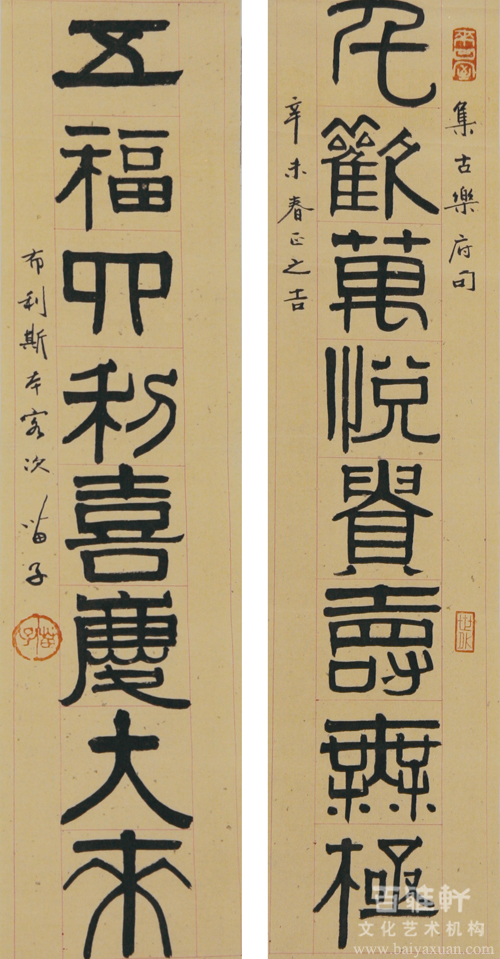 集古樂府句
千歡萬悅貴壽無極
辛未春正之吉
五福四利喜慶大來
布利斯本客次 苗子
苗子
百雅軒
文化艺术机构
www.baiyaxuan.com